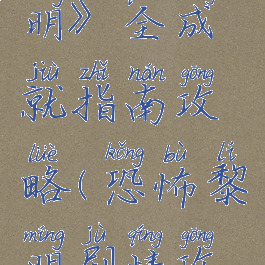 明》全成
jiù zhǐ nán gōng
就指南攻
lüè kǒng bù lí
略(恐怖黎
míng jù qíng gōng
明剧情攻